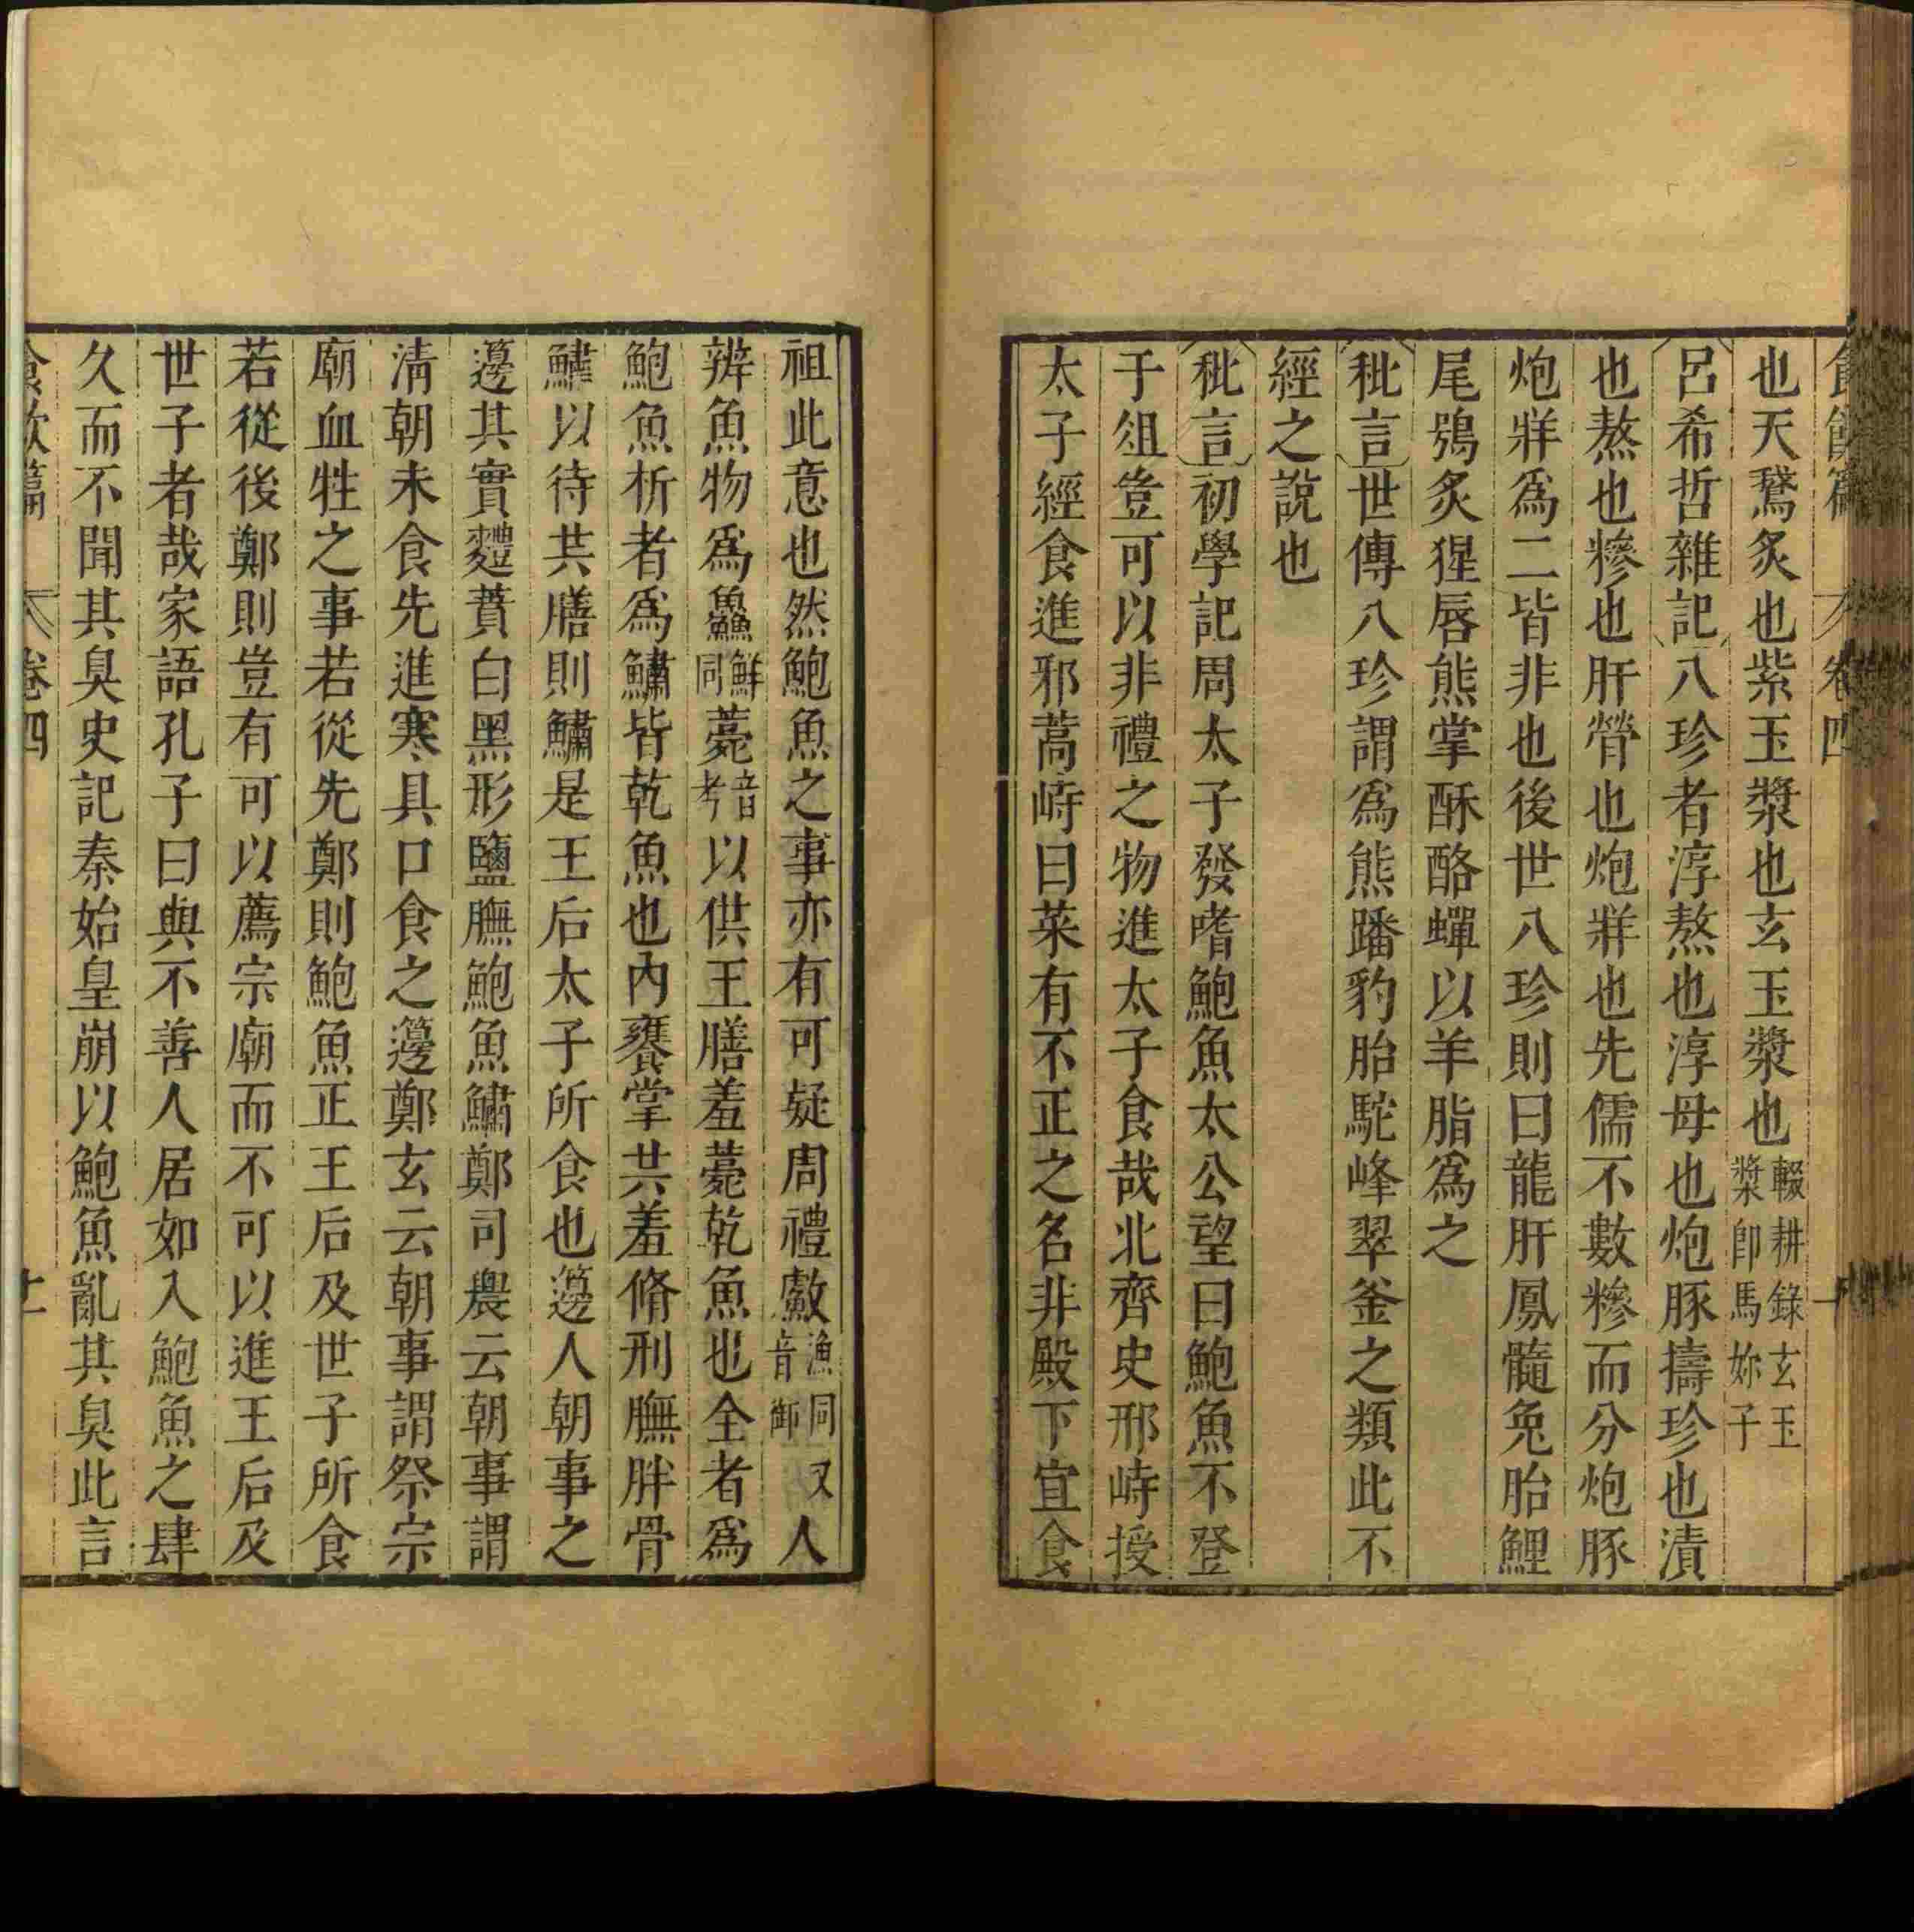 卷四
也天鵞炙也紫玉漿也玄玉漿也輟耕錄玄玉漿卽馬妳子
呂希哲雜記八珍者淳熬也淳母也炮豚擣珍也漬
也熬也糝也肝膋也炮牂也先儒不數糝而分炮豚
炮牂爲二皆非也後世八珍則曰龍肝鳳髓兔胎鯉
尾鴞炙猩唇熊掌酥酪蟬以羊脂爲之
秕言世傳八珍謂爲熊蹯豹胎駝峰翠釜之類此不
經之說也
秕言初學記周太子發嗜鮑魚太公望曰鮑魚不登
于俎豈可以非禮之物進太子食哉北齊史邢峙授
太子經食進邪蒿峙曰菜有不正之名非殿下宜食
祖此意也然鮑魚之事亦有可疑周禮䱷漁同又音御人
辨魚物爲鱻鮮同薧音考以供王膳羞薧乾魚也全者爲
鮑魚析者爲鱐皆乾魚也內饔掌共羞脩刑膴胖骨
鱐以待共膳則鱐是王后太子所食也籩人朝事之
籩其實麷蕡白黑形鹽膴鮑魚鱐鄭司農云朝事謂
淸朝未食先進寒具口食之籩鄭玄云朝事謂祭宗
廟血牲之事若從先鄭則鮑魚正王后及世子所食
若從後鄭則豈有可以薦宗廟而不可以進王后及
世子者哉家語孔子曰與不善人居如入鮑魚之肆
久而不聞其臭史記秦始皇崩以鮑魚亂其臭此言
食飲篇 卷四 十一